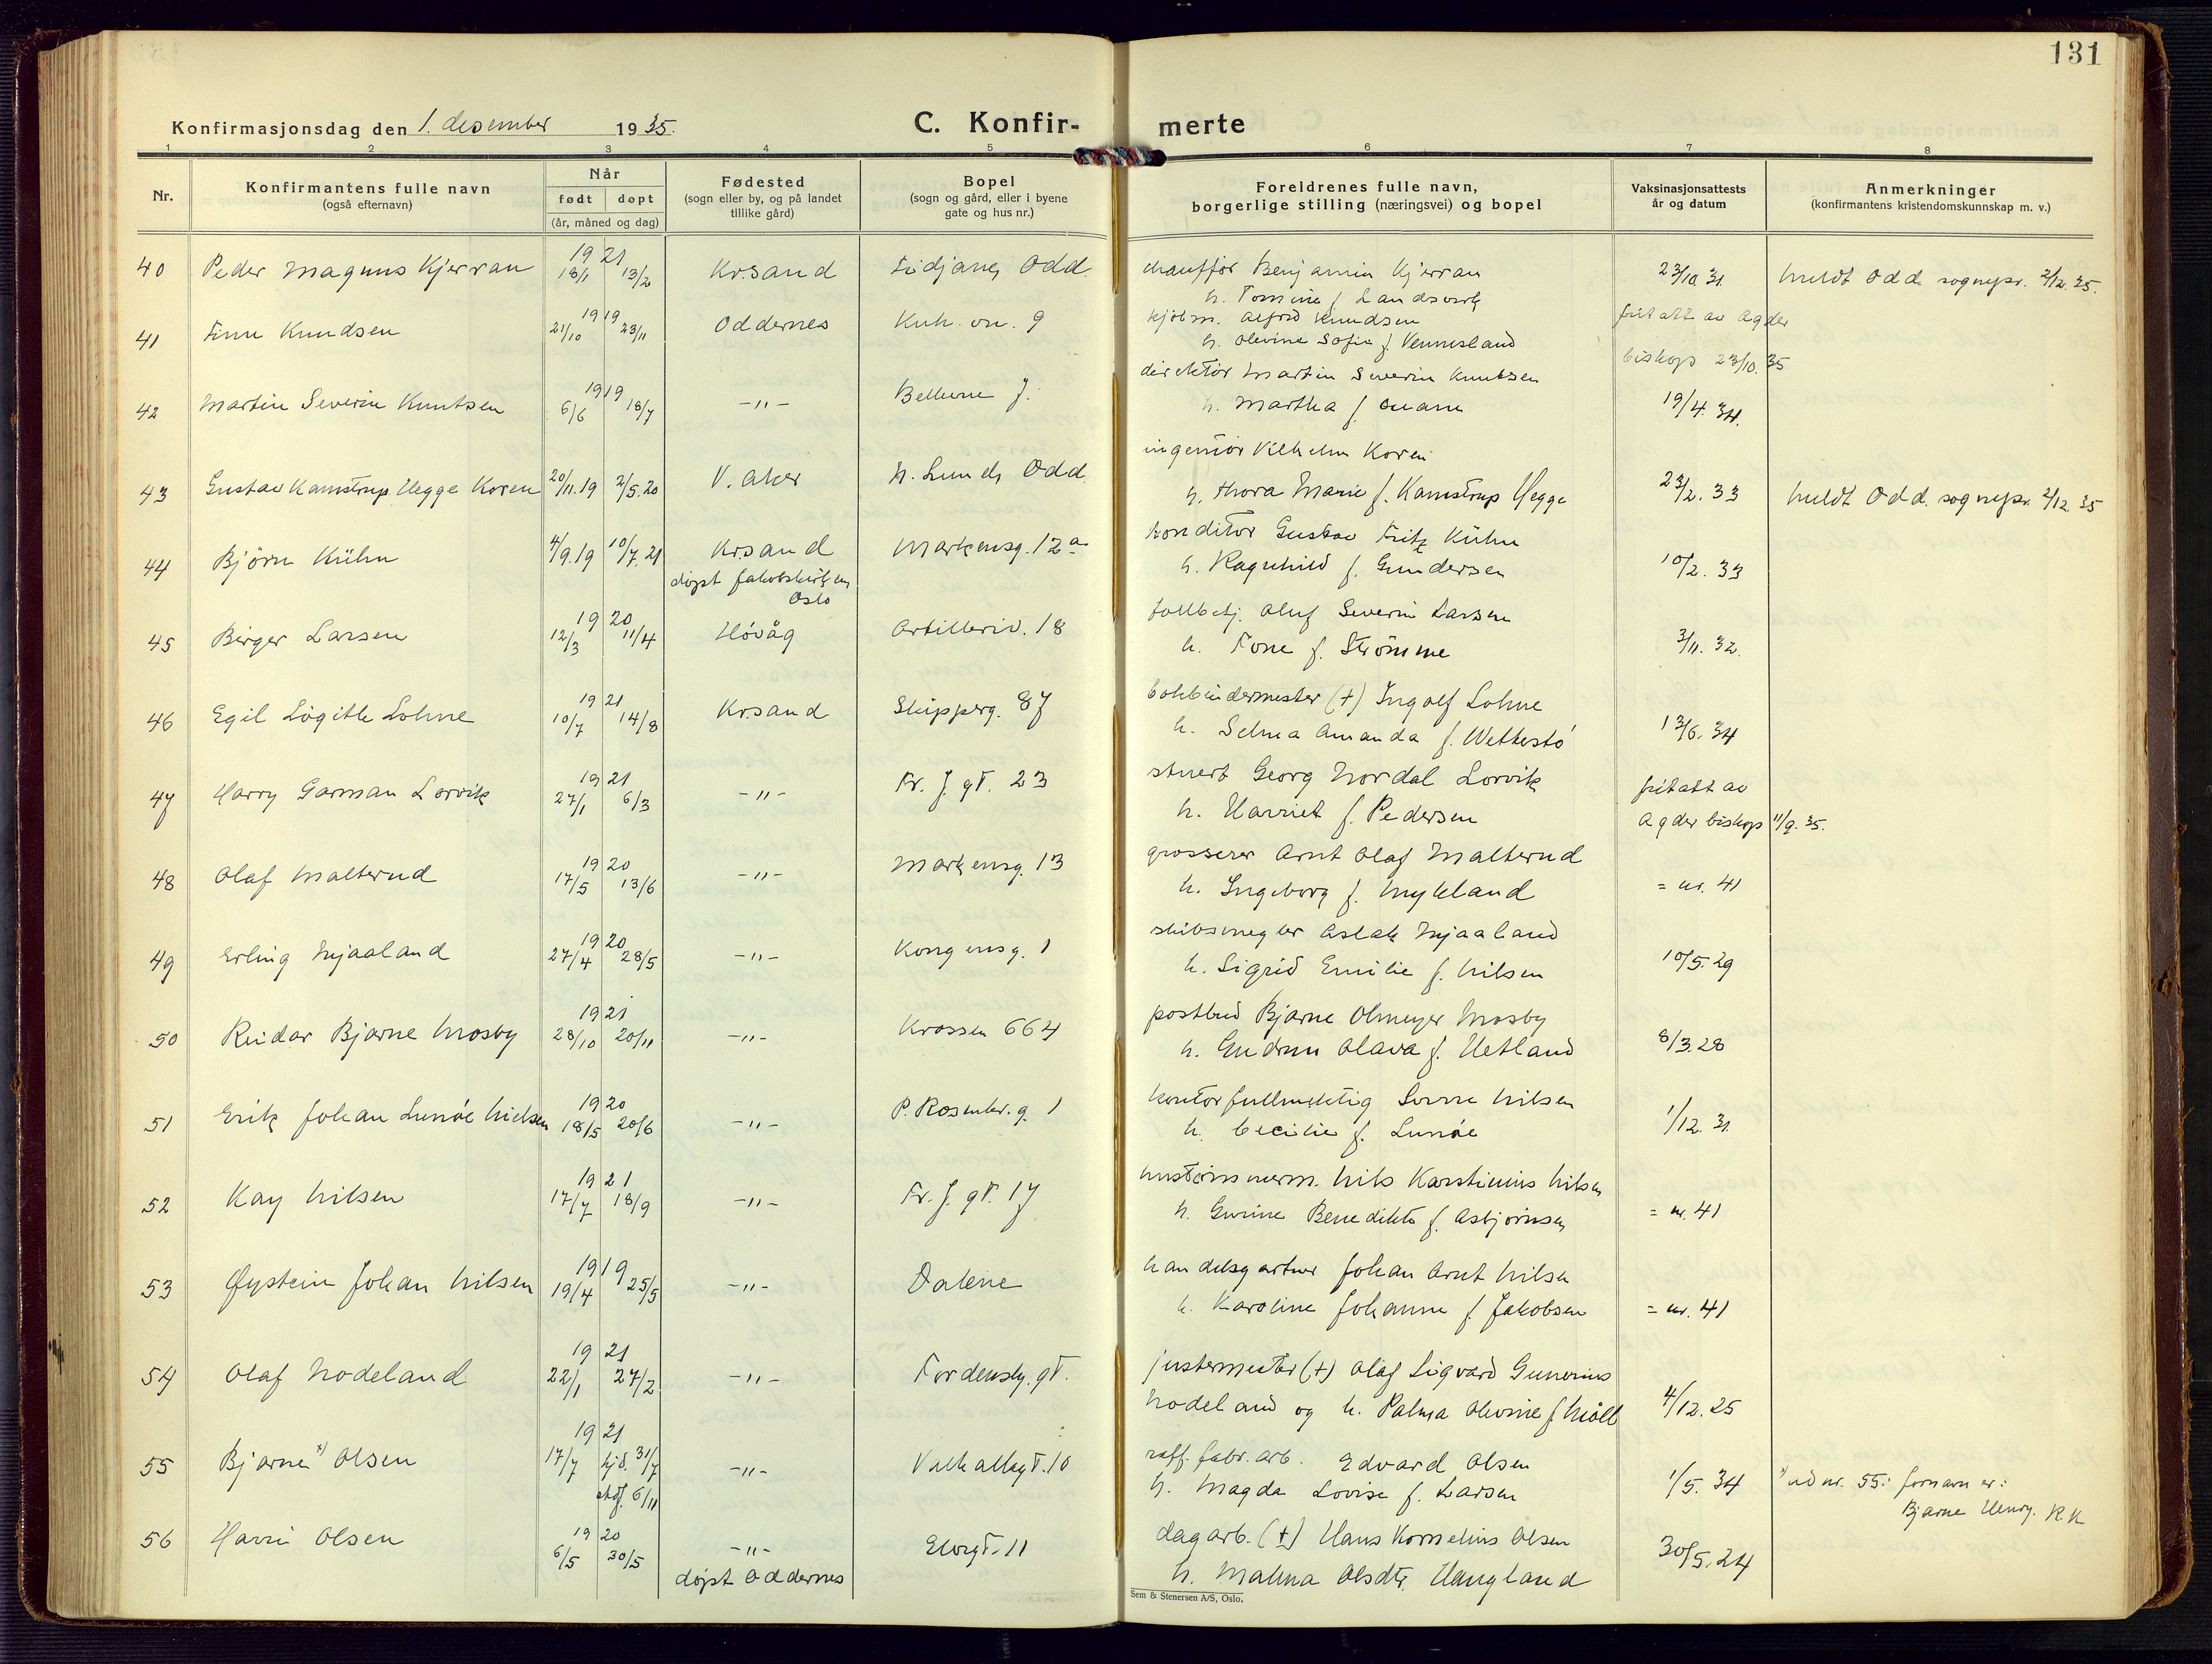 131
Konfirmasjonsdag den 1. desember 1935.
C. Konfir- merte
1 2 3 4 5 6 7 8
Nr.
Konfirmantens fulle navn
(også efternavn)
Når
født døpt
(år, måned og dag)
Fødested
(sogn eller by, og på landet
tillike gård)
Bopel
(sogn og gård, eller i byene
gate og hus nr.)
Foreldrenes fulle navn,
borgerlige stilling (næringsvei) og bopel
Vaksinasjonsattests
år og datum
Anmerkninger
(konfirmantens kristendomskunnskap m. v.)
1921
40 Peder Magnus Kjerran 18/1 13/2 Kr.sand Odd. chauffør Benjamin Kjerran 23/10.31. meldt Odd. sognepr. 2/12.35.
h. Tomine f. Landsverk
1919
41 Finn Knudsen 21/10 23/11 Oddernes Kuh. vn. 9 kjøbm. Alfred Knudsen fritatt av Agder
h. Olevine Sofie f. Vennesland biskop 23/10.35
1919
42 Martin Severin Knutsen 6/6 18/7 -"- Bellevue 7. direktør Martin Severin Knutsen
h. Martha f. 19/4.34.
43 Gustav Kamstrup Hegge Koren 20/11.19 2/5.20 V. Aker N. Lund, Odd. ingeniør Vilhelm Koren
h. Thora Marie f. Kamstrup Hegge 23/2.33 meldt Odd. sognepr. 2/12.35
44 Bjørn Kühn 4/9.19 10/7.21 Kr.sand Markensg. 12a konditor Gustav Fritz Kühn
døpt Jakobskirken Oslo h. Ragnhild f. Gundersen 10/2.33
1920
45 Birger Larsen 12/3 11/4 Høvåg Artilleriv. 18 tollbetj. Oluf Severin Larsen
h. Tone f. Strømme 3/11.32.
1921
46 Egil Løgitle Lohne 10/7 14/8 Kr.sand Skipperg. 87 bokbindermester (+) Ingolf Lohne
h. Selma Amanda f. Wettestø 13/6.34
1921
47 Harry Garman Lorvik 27/1 6/3 -"- Fr. J. gt. 23 stuert Georg Nordal Lorvik fritatt av
h. Harriet f. Pedersen Agder biskop 11/9.35.
1920
48 Olaf Malterud 17/5 13/6 -"- Markensg. 13 grosserer Arnt Olaf Malterud
h. Ingeborg f. Mykland = nr. 41
1920
49 Erling Mjaaland 27/4 28/5 -"- Kongensg. 1 skibsmegler Aslak Mjaaland
h. Sigrid Emilie f. Nilsen 10/5.29
1921
50 Reidar Bjarne Mosby 28/10 20/11 -"- Krossen 664 postbud Bjarne Olmeyer Mosby
h. Gudrun Olava f. Hetland 8/3.28
1920
51 Erik Johan Lunøe Nielsen 18/5 20/6 -"- P. Rosenkr. g. 1 kontorfullmektig Sverre Nilsen
h. Cecilie f. Lunøe 1/12.31.
1921
52 Kay Nilsen 17/7 18/9 -"- Fr. J. gt. 17 hustømmerm. Nils Karstinius Nilsen
h. Gurine Benedikte f. Asbjørnsen = nr. 41
1919
53 Øystein Johan Nilsen 19/4 25/5 -"- Dalene handelsgartner Johan Arnt Nilsen
h. Karoline Johanne f. Jakobsen = nr. 41
1921
54 Olaf Nodeland 22/1 27/2 -"- Tordenskj. gt. justermester (+) Olaf Sigvard Gunerius
Nodeland og h. Palma Olevine f. Moll 4/12.25
1921
55 Bjarne x) Olsen 17/7 hjd. 31/7 -"- Valhallagt. 10 raff. fabr. arb. Edvard Olsen
stadf. 6/11 h. Magda Lovise f. Larsen 1/5.34 x) ved nr. 55: fornavn er:
Bjarne Henry. R K
1920
56 Harri Olsen 6/5 30/5 -"- Elvegt. 11 dagarb. (+) Hans Kornelius Olsen
døpt Oddernes h. Malma Olsdtr. Haugland 30/5.24
Sem & Stenersen A/S, Oslo.